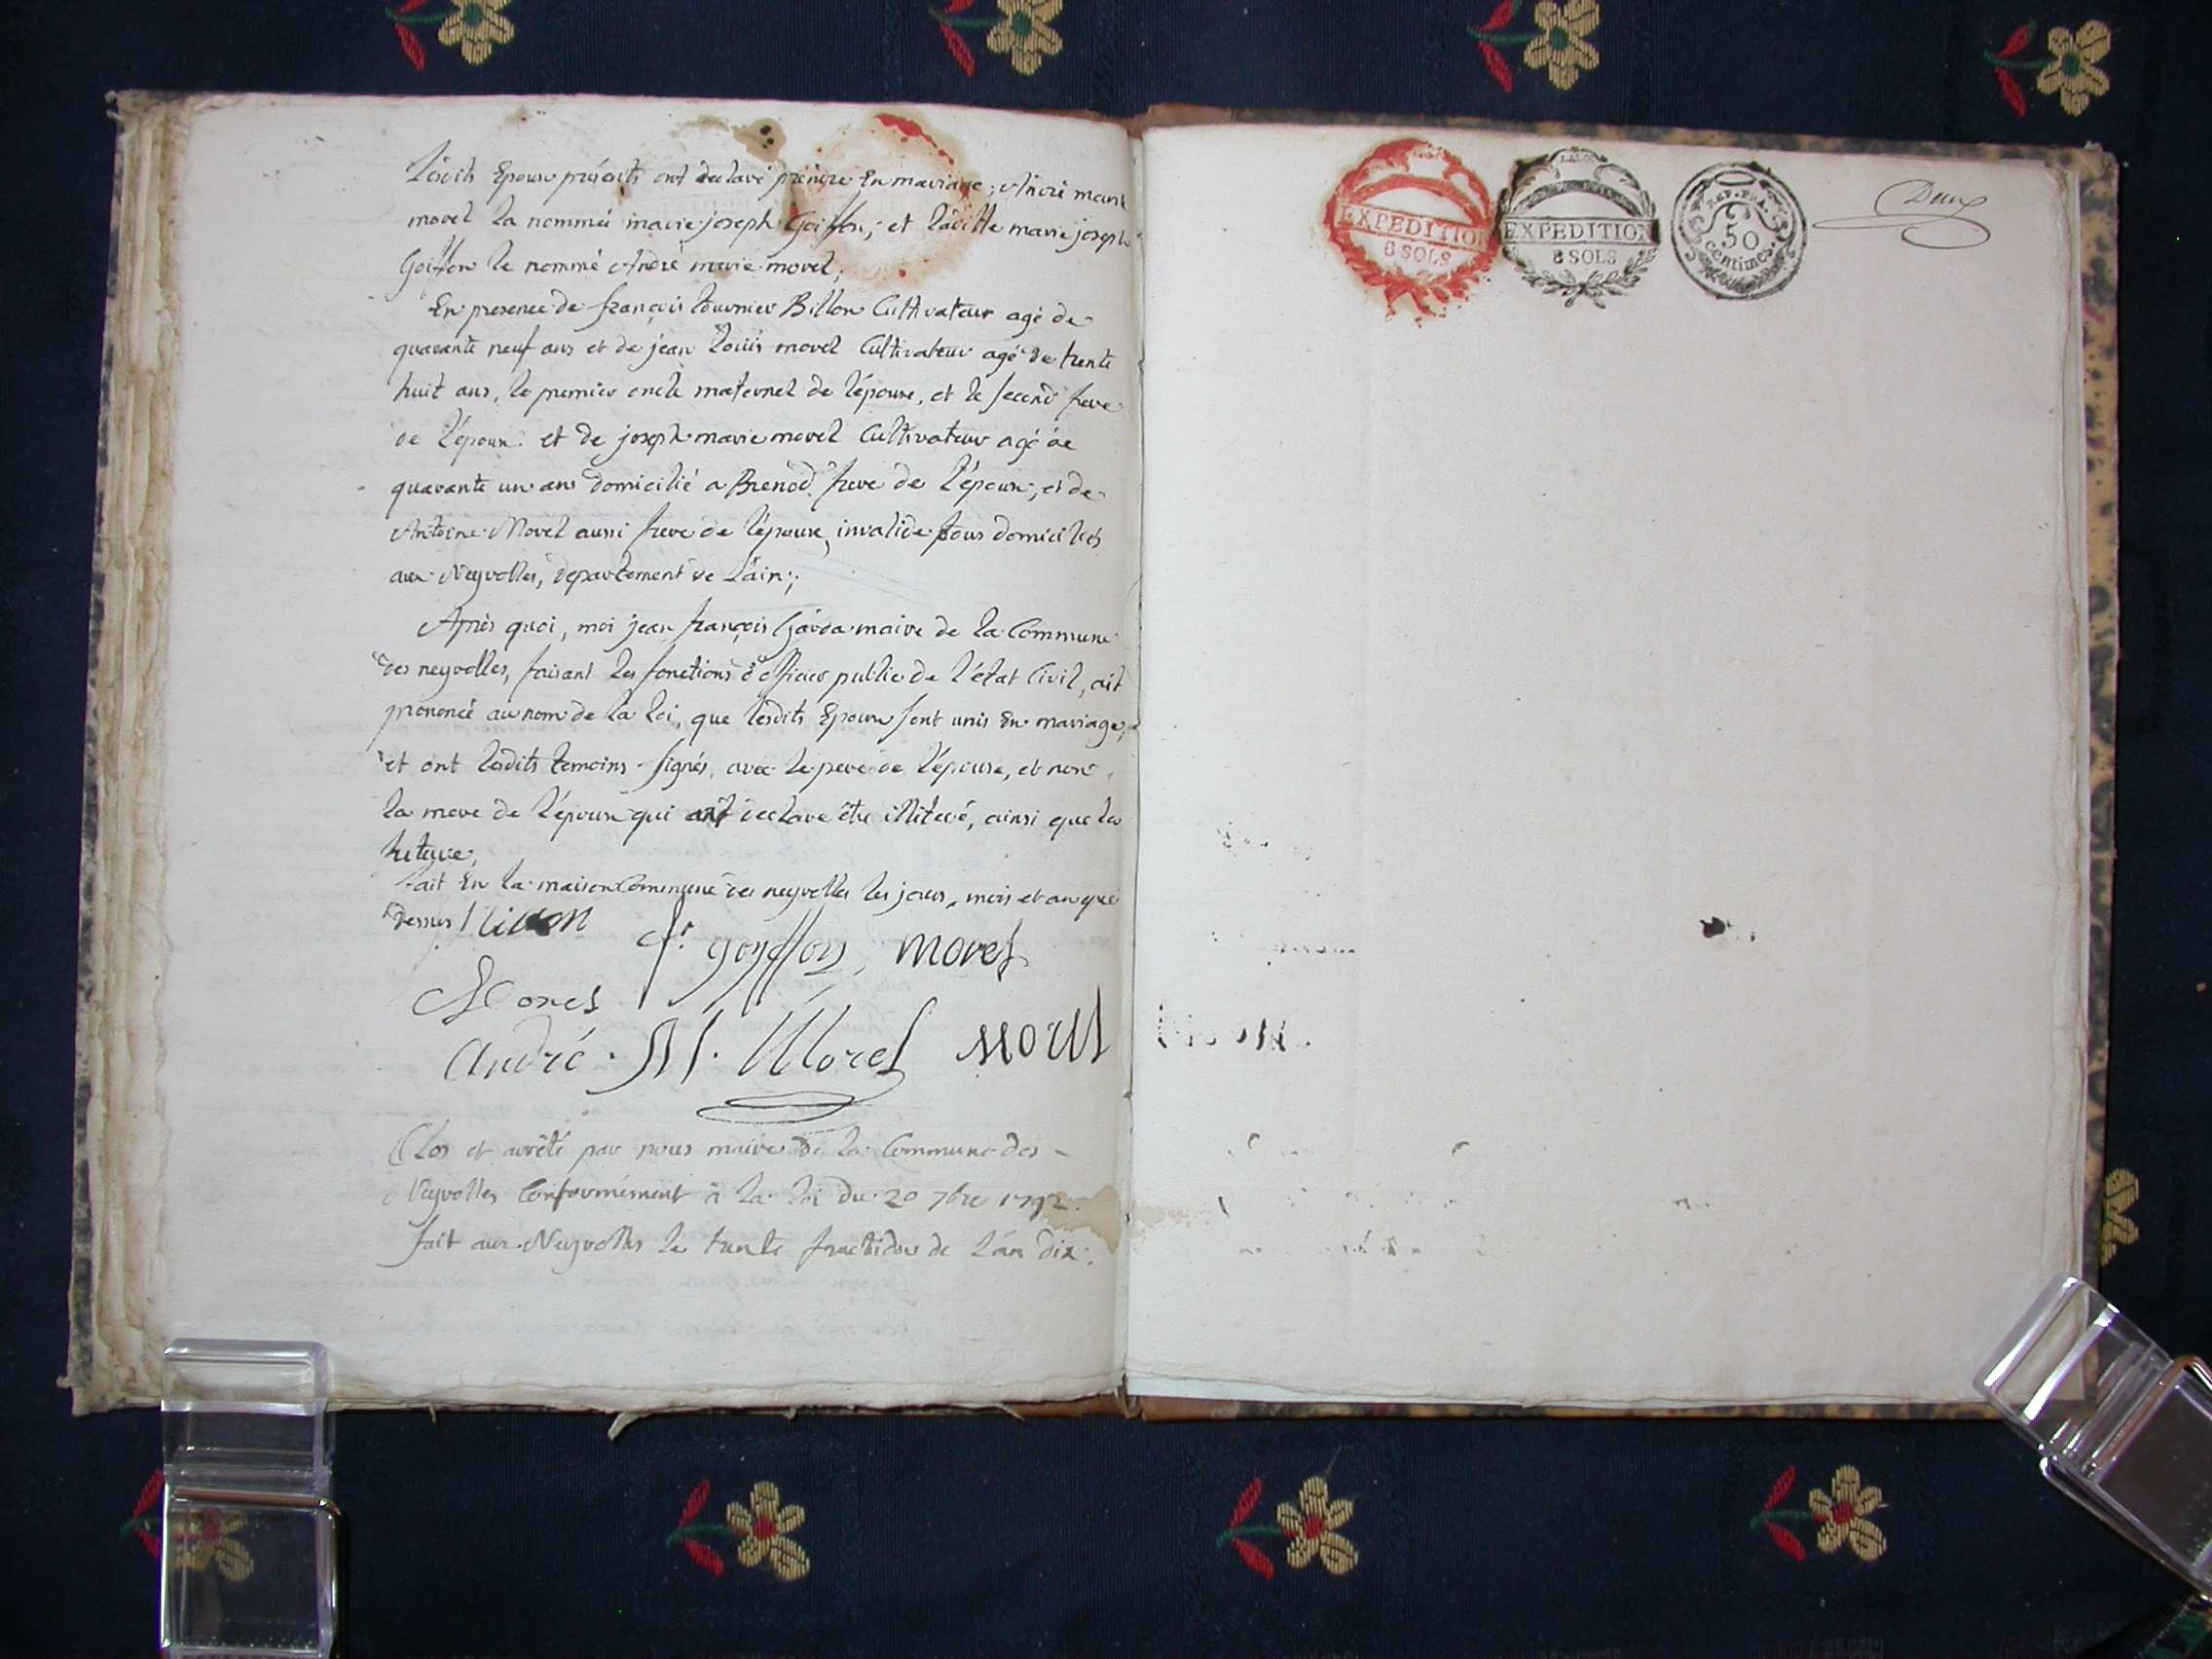 Lesdits Epoux présents ont declaré prendre En mariage; André marie
morel la nommée marie joseph Goiffon; et laditte marie joseph
Goiffon le nommé André marie morel;
En presence de françois tournier Billon Cultivateur agé de
quarante neuf ans et de jean Loüis morel Cultivateur agé de trente
huit ans, le premier oncle maternel de l'épouse, et le second frere
de l'époux. et de joseph marie morel Cultivateur agé de
quarante un ans domicilié a Brenod frere de l'époux; et de
Antoine Morel aussi frere de l'épouse, invalide tous domiciliés
aux Neyrolles, departement de L'ain;
Après quoi, moi jean françois Garda maire de la Commune
des neyrolles, faisant les fonctions d'officier public de l'état Civil, ait
prononcé au nom de la loi, que lesdits Epoux sont unis En mariage,
et ont lesdits temoins signés, avec le pere de l'épouse, et non
la mere de l'époux qui ont declare être illiteré, ainsi que la
future,
fait En la maison Commune des neyrolles les jours, mois et an que
dessus Billon
fr. goyffon, morel
Morel
André. M. Morel morel
Clos et arrêté par nous maire de la Commune des
Neyrolles Conformément à la loi du 20 7bre 1792.
fait aux Neyrolles le trente fructidor de l'an dix.
EXPEDITION
8 SOLS
LA LOI
EXPEDITION
8 SOLS
REP. FRA.
50
centimes.
Deux